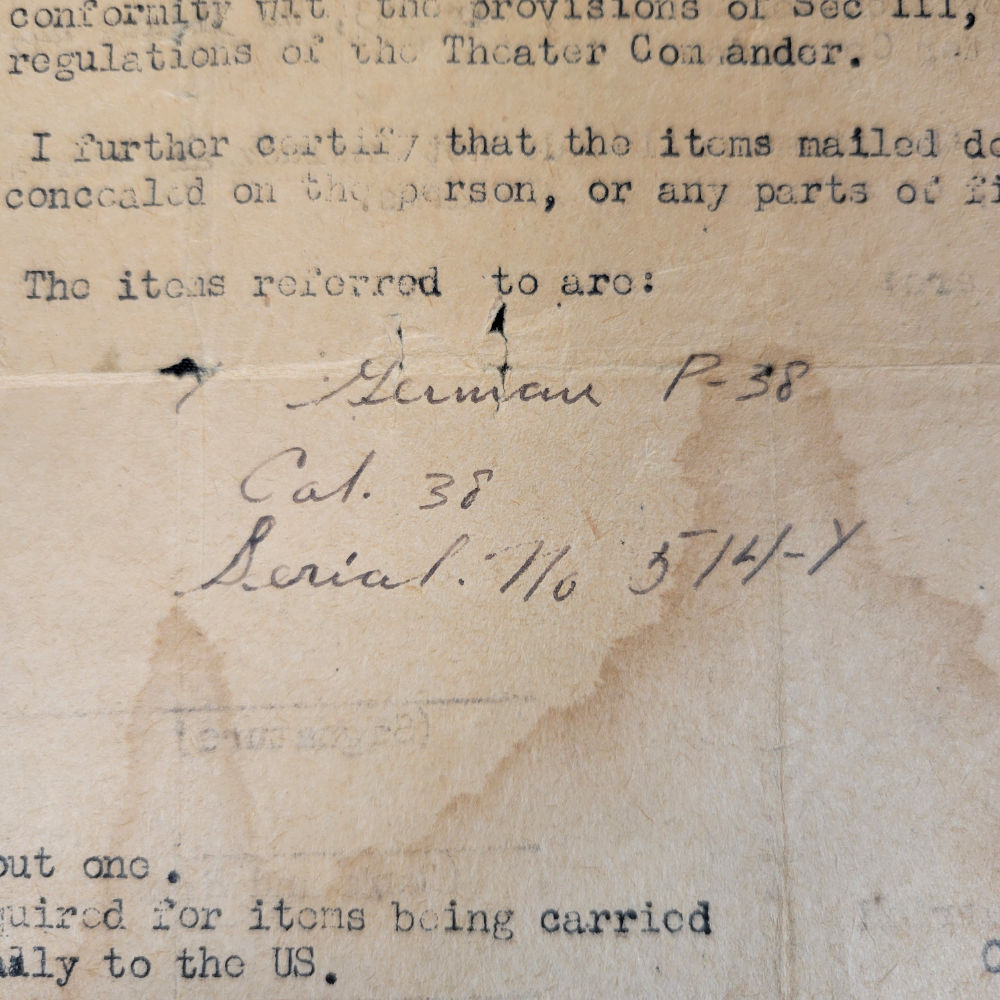 conformity wit the provisions of Sec III,
regulations of the Theater Commander.
I further certify that the items mailed do
concealed on the person, or any parts of fi
The items referred to are:
German P-38
Cal. 38
Serial. No 514-Y
(Signature)
out one.
quired for items being carried
ally to the US.